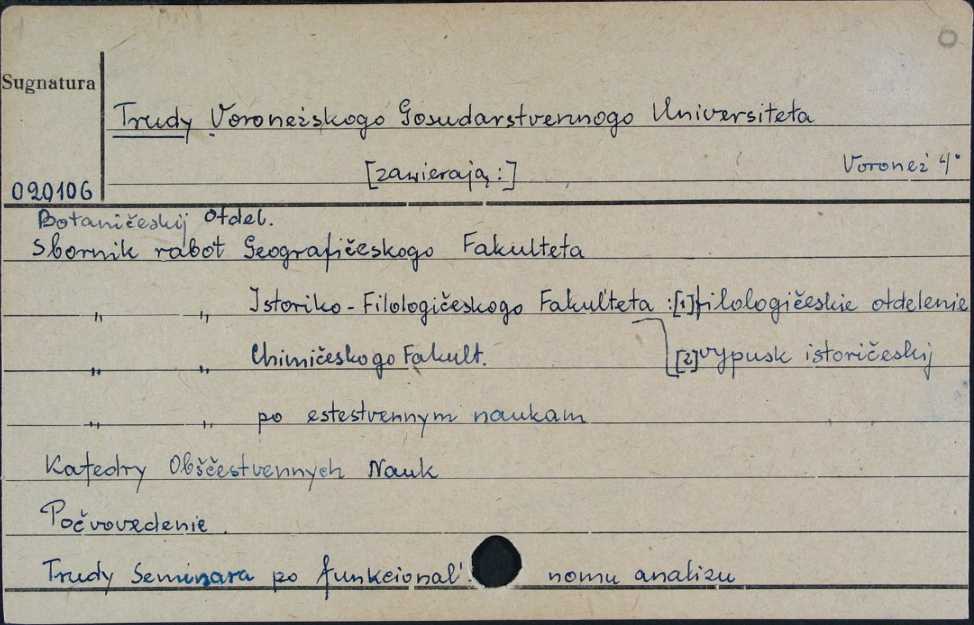 Sugnatura
Trudy Voronežskogo Gosudarstvennogo Universiteta
[zawierają:] Voronež 4°
020106
Botaničeskij otdel.
Sbornik rabot Geografičeskogo Fakulteta
„ „ Istoriko-Filologičeskogo Fakulteta :[1]filologičeskie otdelenie
„ „ Chimičeskogo Fakult. [2]vypusk istoričeskij
„ „ po estestvennym naukam
Katedry Obščestvennych Nauk
Počvovedenie.
Trudy Seminara po funkcional'nomu analizu